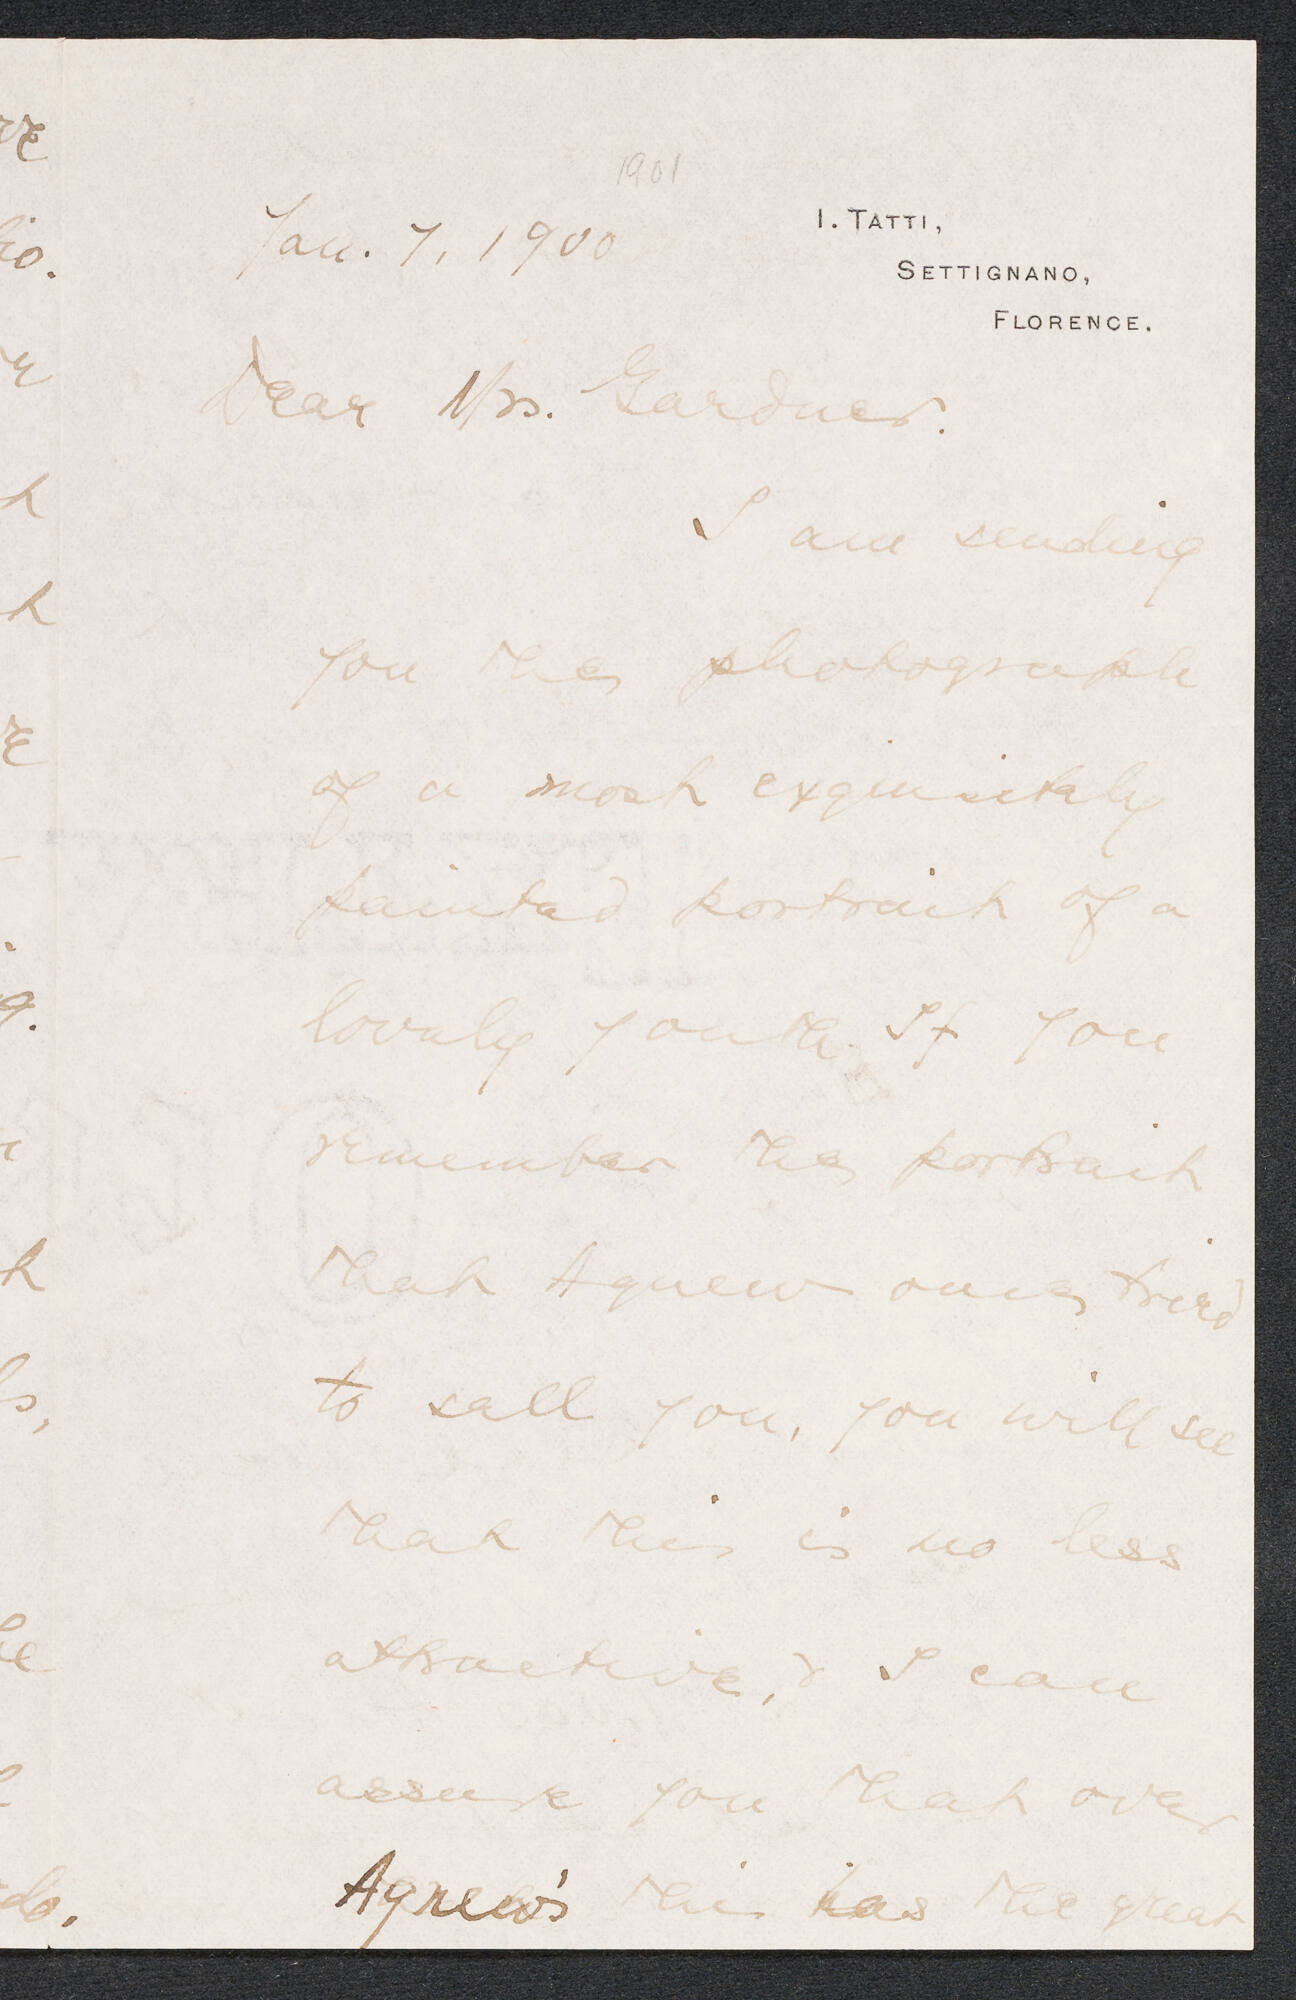 1901
Jan. 7, 1900
I. TATTI,
SETTIGNANO,
FLORENCE.
Dear Mrs. Gardner.
I am sending
you the photograph
of a most exquisitely
painted portrait of a
lovely youth. If you
remember the portrait
that Agnew once tried
to sell you, you will see
that this is no less
attractive, & I can
assure you that over
Agnew's this has the great